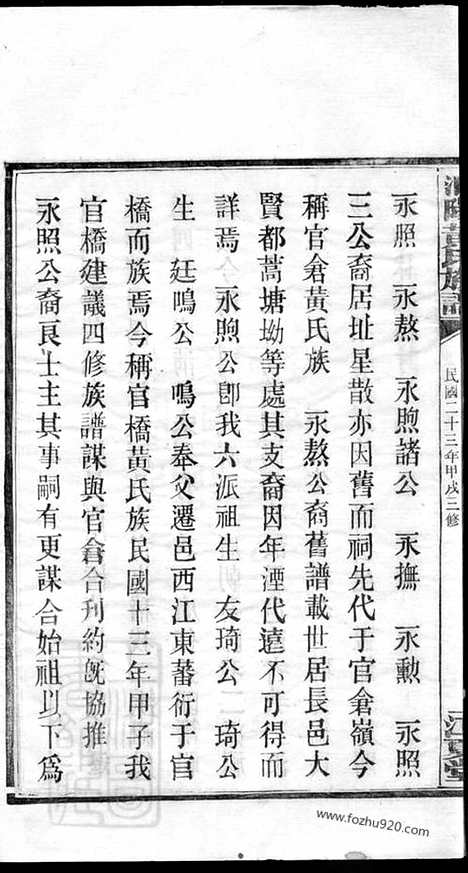 永照　永熬　永煦諸公　永撫　永勲　永照
三公裔居址星散亦因舊而祠先代于官倉嶺今
稱官倉黃氏族　永熬公裔舊譜載世居長邑大
賢都蒿塘坳等處其支裔因年湮代遠不可得而
詳焉今永煦公卽我六派祖生　友琦公二　琦公
生　廷鳴公　鳴公奉父遷邑西江東蕃衍于官
橋而族焉今稱官橋黃氏族民國十三年甲子我
官橋建議四修族譜謀與官倉合刊約旣協推
永照公裔良士主其事嗣有更謀合始祖以下爲
黃氏族譜
民國二十三年甲戌三修
江夏堂
www.fozhu920.com